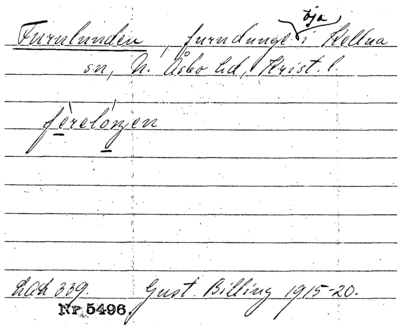 Furulunden, furudunge i öja Kellna
sn, N. Åsbo hd, Krist. l.
fèrelónen
Gust. Billing 1915-20.
Nr 5496.